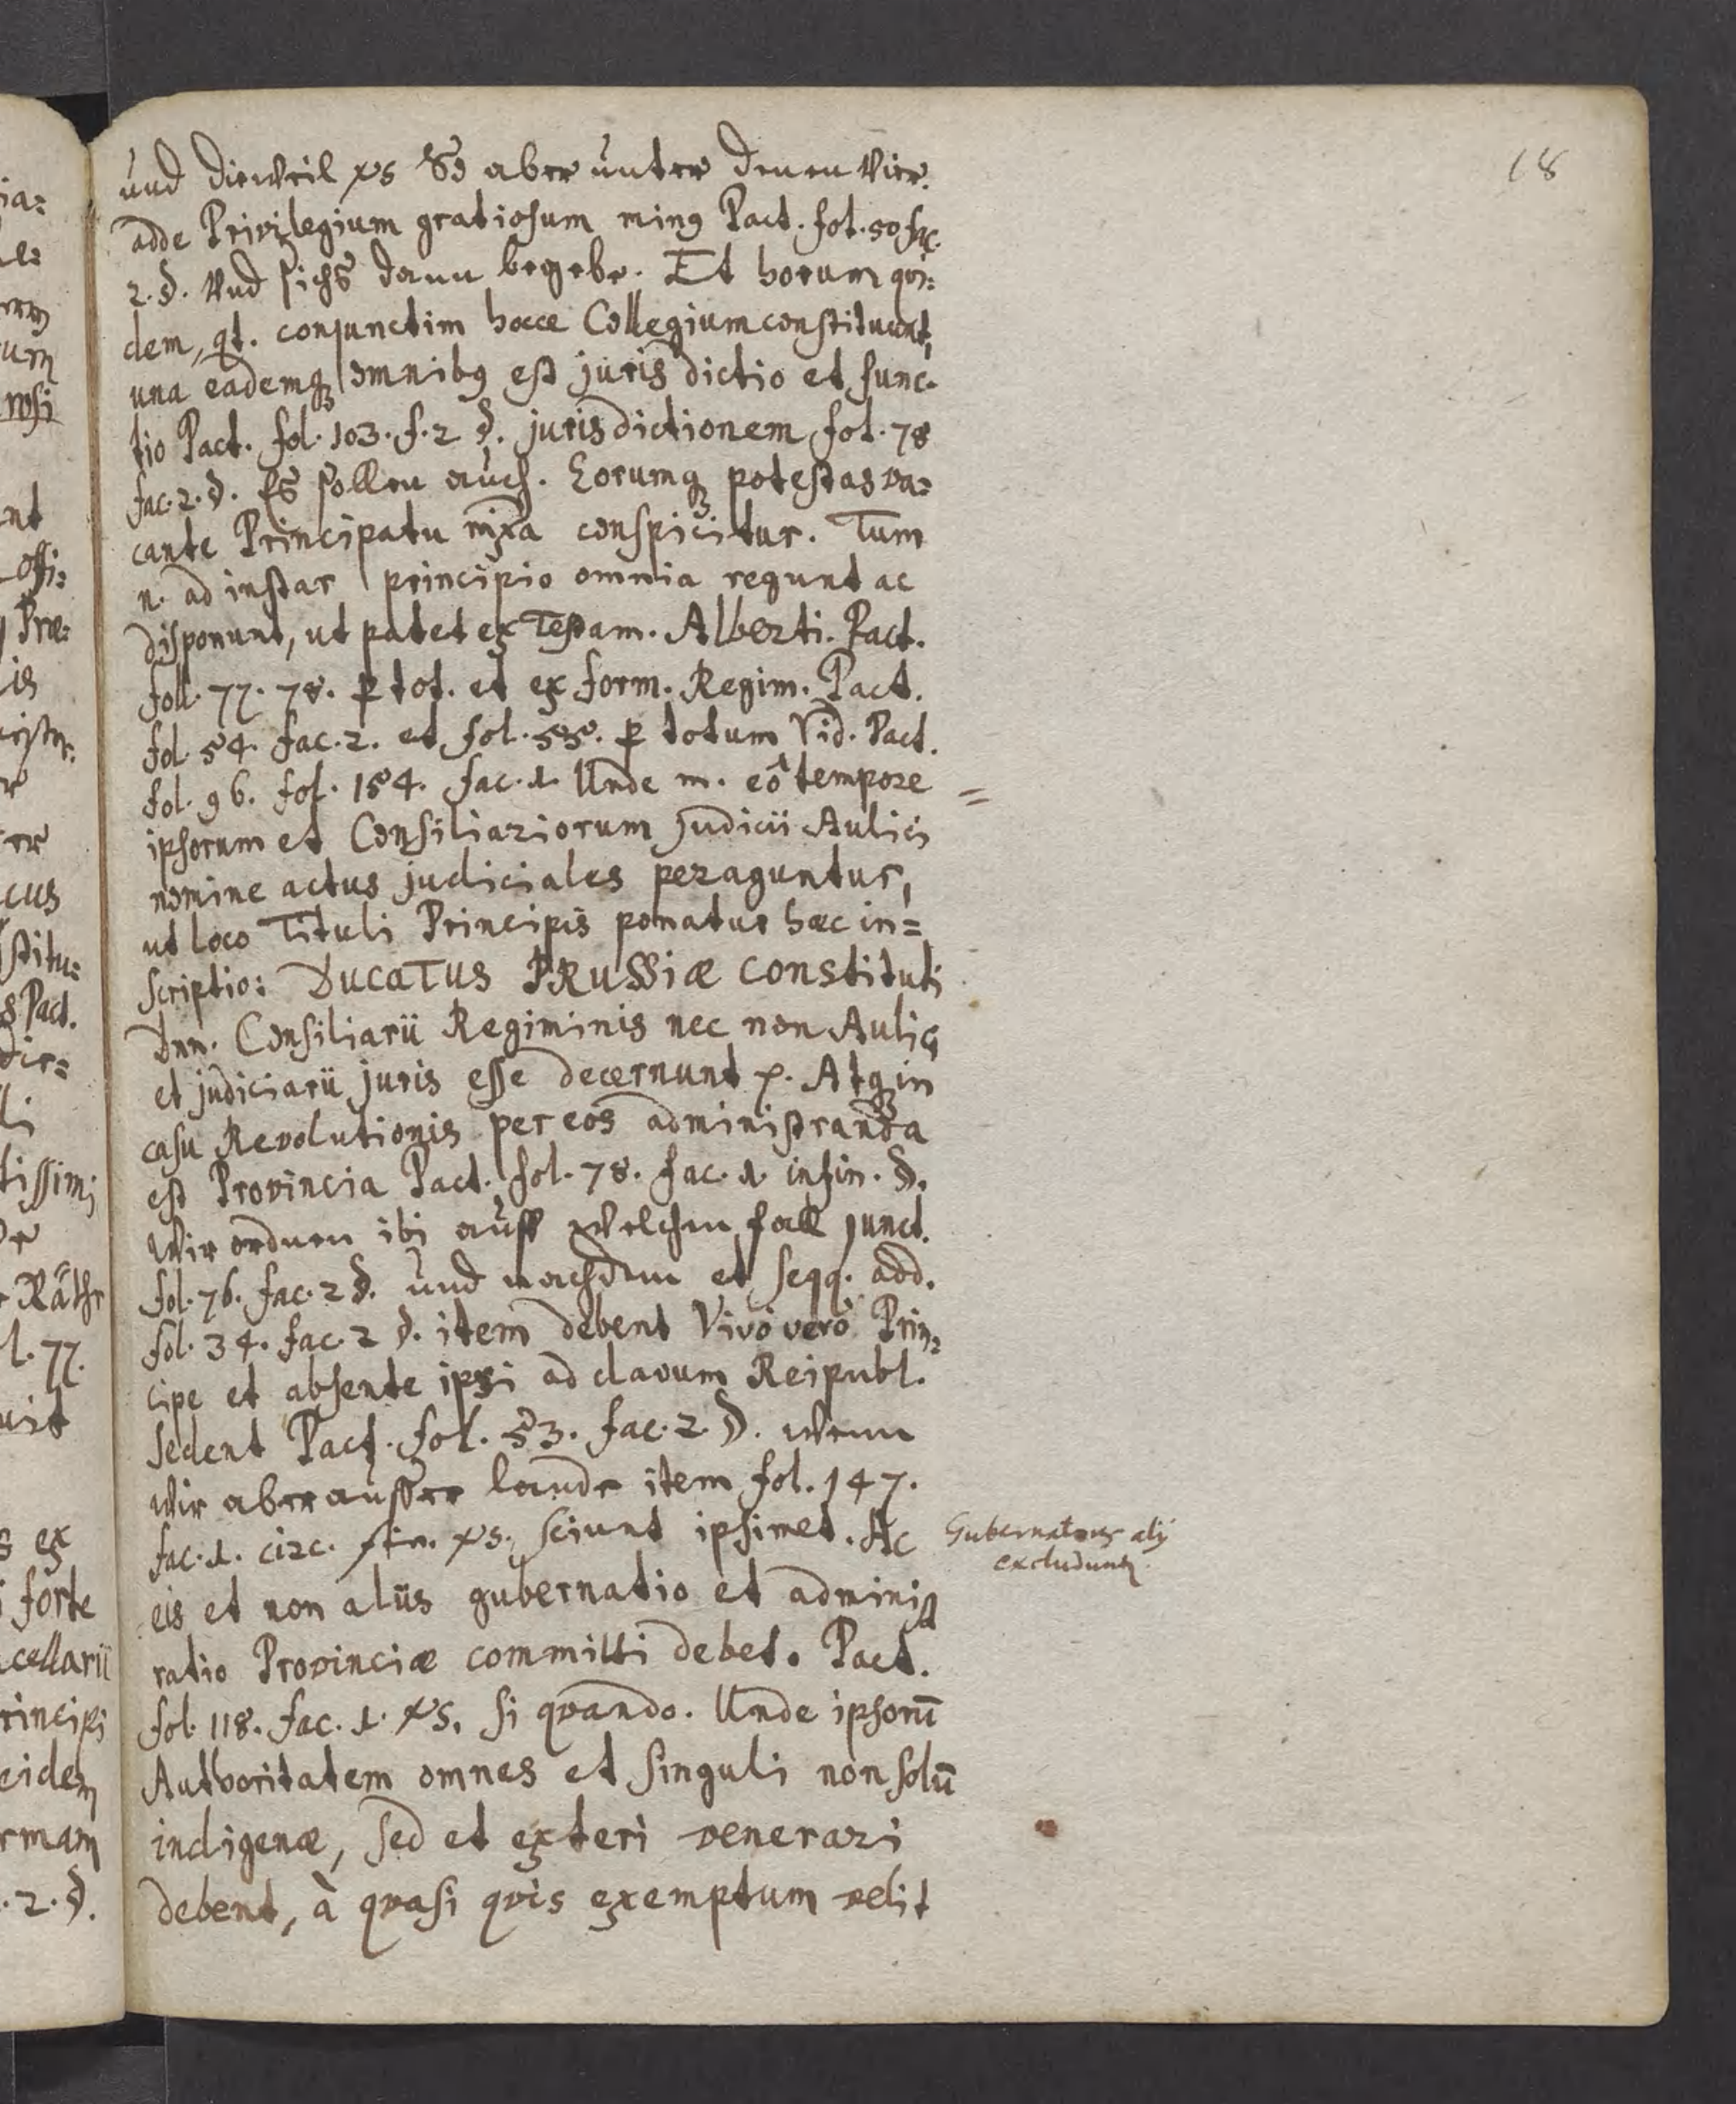 18
und dieweil vs So aber unter denen Vier.
adde Privilegium gratiosum ming Pact. fol. 50 fac.
2. §. Und sichs dann begebe. Et horum qvi=
dem, qt. conjunctim hocce Collegium constituunt,
una eademq omnibg est jurisdictio et func-
tio Pact. fol. 103. f. 2 §. jurisdictionem fol. 78
fac. 2. §. Es sollen auch. Eorumq potestas va=
cante Principatu mixa conspicitur. Tum
n. ad instar principio omnia regunt ac
disponunt, ut patet ex Testam. Alberti. Pact.
foll. 77. 78. p tot. et ex form. Regim. Pact.
fol. 54. fac. 2. et fol. 55. p totum Vid. Pact.
fol. 96. fol. 154. fac. 1. Unde m. eô tempore =
ipsorum et Consiliariorum Judicii Aulici
nomine actus judiciales peraguntur,
ut loco Tituli Principis ponatur hæc in=
scriptio: DUCATUS PRUSSIÆ constituti
Dnn. Consiliarii Regiminis nec non Aulici
et judiciarii juris esse decernunt p. Atq in
casu Revolutionis per eos administranda
est Provincia Pact. fol. 78. fac. 1. infin. §.
Wir ordnen ibi auff welchen fall junct.
fol. 76. fac. 2 §. und nachdem et seqq. add.
fol. 34. fac. 2 §. item debent Vivô verò Prin=
cipe et absente ipsi ad clavum Reipubl.
sedent Pact. fol. 53. fac. 2. §. Wenn
Wir aber ausser lande item fol. 147.
fac. 1. circ. fin. vs. sciunt ipsimet. Ac
Gubernatores alij
excluduntr
eis et non aliis gubernatio et administ
ratio Provinciæ committi debet. Pact.
fol. 118. fac. 1. vs. si qvando. Unde ipsorū
Authoritatem omnes et singuli non solū
indigenæ, sed et exteri venerari
debent, à qvasi qvis exemptum velit